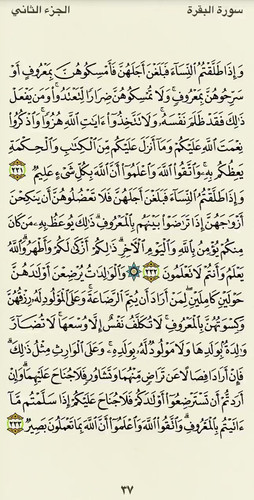 سورة البقرة الجزء الثاني
وَإِذَا طَلَّقْتُمُ ٱلنِّسَآءَ فَبَلَغْنَ أَجَلَهُنَّ فَأَمْسِكُوهُنَّ بِمَعْرُوفٍ أَوْ
سَرِّحُوهُنَّ بِمَعْرُوفٍ ۚ وَلَا تُمْسِكُوهُنَّ ضِرَارًا لِّتَعْتَدُوا۟ ۚ وَمَن يَفْعَلْ
ذَٰلِكَ فَقَدْ ظَلَمَ نَفْسَهُۥ ۚ وَلَا تَتَّخِذُوٓا۟ ءَايَـٰتِ ٱللَّهِ هُزُوًا ۚ وَٱذْكُرُوا۟
نِعْمَتَ ٱللَّهِ عَلَيْكُمْ وَمَآ أَنزَلَ عَلَيْكُم مِّنَ ٱلْكِتَـٰبِ وَٱلْحِكْمَةِ
يَعِظُكُم بِهِۦ ۚ وَٱتَّقُوا۟ ٱللَّهَ وَٱعْلَمُوٓا۟ أَنَّ ٱللَّهَ بِكُلِّ شَىْءٍ عَلِيمٌ ٢٣١
وَإِذَا طَلَّقْتُمُ ٱلنِّسَآءَ فَبَلَغْنَ أَجَلَهُنَّ فَلَا تَعْضُلُوهُنَّ أَن يَنكِحْنَ
أَزْوَٰجَهُنَّ إِذَا تَرَٰضَوْا۟ بَيْنَهُم بِٱلْمَعْرُوفِ ۗ ذَٰلِكَ يُوعَظُ بِهِۦ مَن كَانَ
مِنكُمْ يُؤْمِنُ بِٱللَّهِ وَٱلْيَوْمِ ٱلْـَٔاخِرِ ۗ ذَٰلِكُمْ أَزْكَىٰ لَكُمْ وَأَطْهَرُ ۗ وَٱللَّهُ
يَعْلَمُ وَأَنتُمْ لَا تَعْلَمُونَ ٢٣٢ ۞ وَٱلْوَٰلِدَٰتُ يُرْضِعْنَ أَوْلَـٰدَهُنَّ
حَوْلَيْنِ كَامِلَيْنِ ۖ لِمَنْ أَرَادَ أَن يُتِمَّ ٱلرَّضَاعَةَ ۚ وَعَلَى ٱلْمَوْلُودِ لَهُۥ رِزْقُهُنَّ
وَكِسْوَتُهُنَّ بِٱلْمَعْرُوفِ ۚ لَا تُكَلَّفُ نَفْسٌ إِلَّا وُسْعَهَا ۚ لَا تُضَآرَّ
وَٰلِدَةٌۢ بِوَلَدِهَا وَلَا مَوْلُودٌ لَّهُۥ بِوَلَدِهِۦ ۚ وَعَلَى ٱلْوَارِثِ مِثْلُ ذَٰلِكَ ۗ
فَإِنْ أَرَادَا فِصَالًا عَن تَرَاضٍ مِّنْهُمَا وَتَشَاوُرٍ فَلَا جُنَاحَ عَلَيْهِمَا ۗ وَإِنْ
أَرَدتُّمْ أَن تَسْتَرْضِعُوٓا۟ أَوْلَـٰدَكُمْ فَلَا جُنَاحَ عَلَيْكُمْ إِذَا سَلَّمْتُم مَّآ
ءَاتَيْتُم بِٱلْمَعْرُوفِ ۗ وَٱتَّقُوا۟ ٱللَّهَ وَٱعْلَمُوٓا۟ أَنَّ ٱللَّهَ بِمَا تَعْمَلُونَ بَصِيرٌ ٢٣٣
٣٧